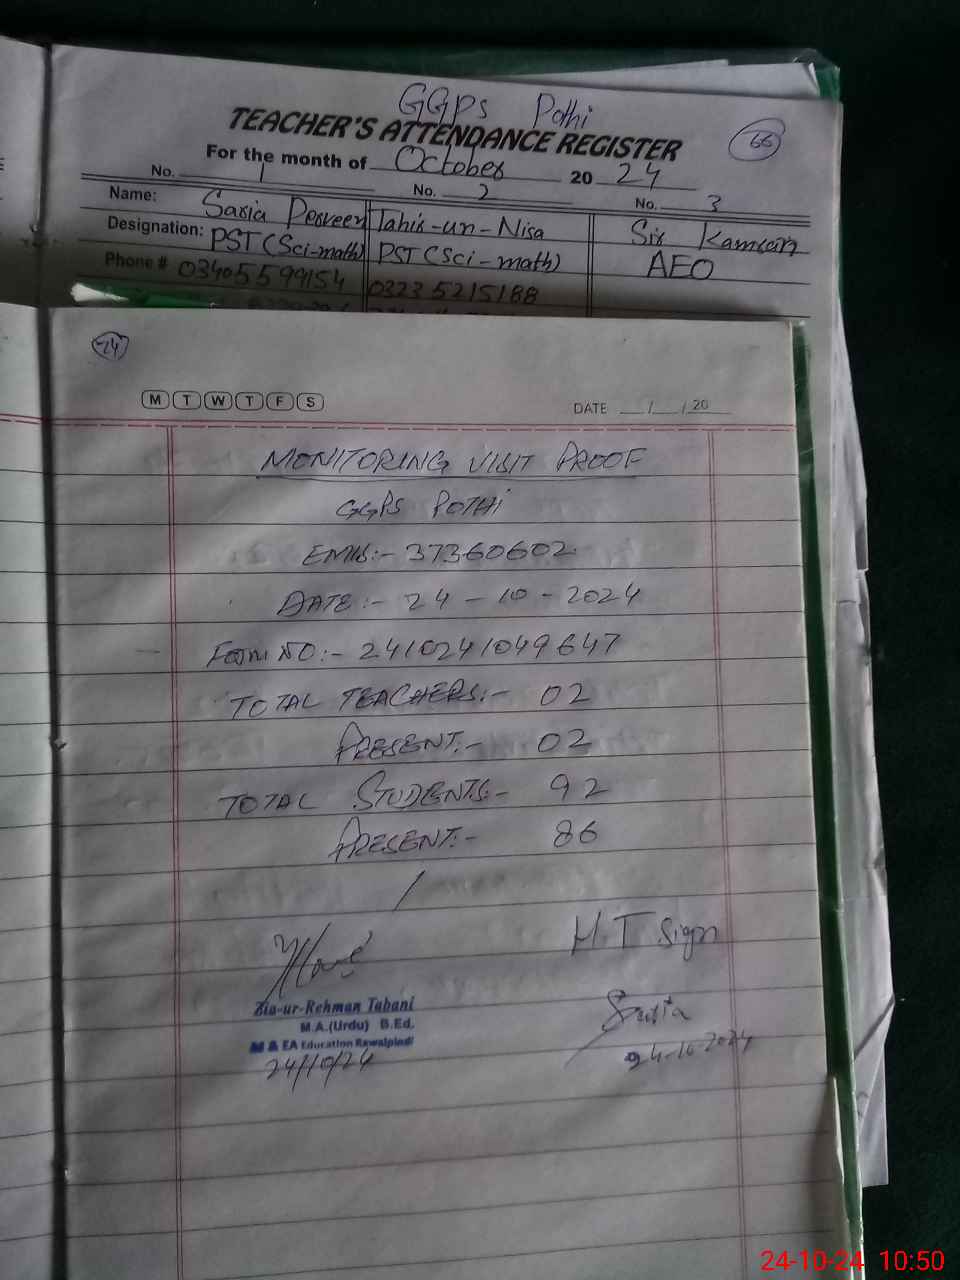 GGPS Pothi
TEACHER'S ATTENDANCE REGISTER
66
For the month of October 20 24
No. 1 No. 2 No. 3
Name: Saria Perveen Tahir-un-Nisa Sir Kamran
Designation: PST (Sci-math) PST (Sci-math) AEO
Phone # 03405599154 0323 5215188
24
M T W T F S
DATE / / 20
MONITORING VISIT PROOF
GGPS POTHI
EMIS:- 37360602
DATE:- 24-10-2024
FORM NO:- 2410241049647
TOTAL TEACHERS:- 02
PRESENT:- 02
TOTAL STUDENTS:- 92
PRESENT:- 86
H.T Sign
Zia-ur-Rehman Tabani
M.A.(Urdu) B.Ed.
M & EA Education Rawalpindi
24/10/24
Saria
24-10-2024
24-10-24 10:50